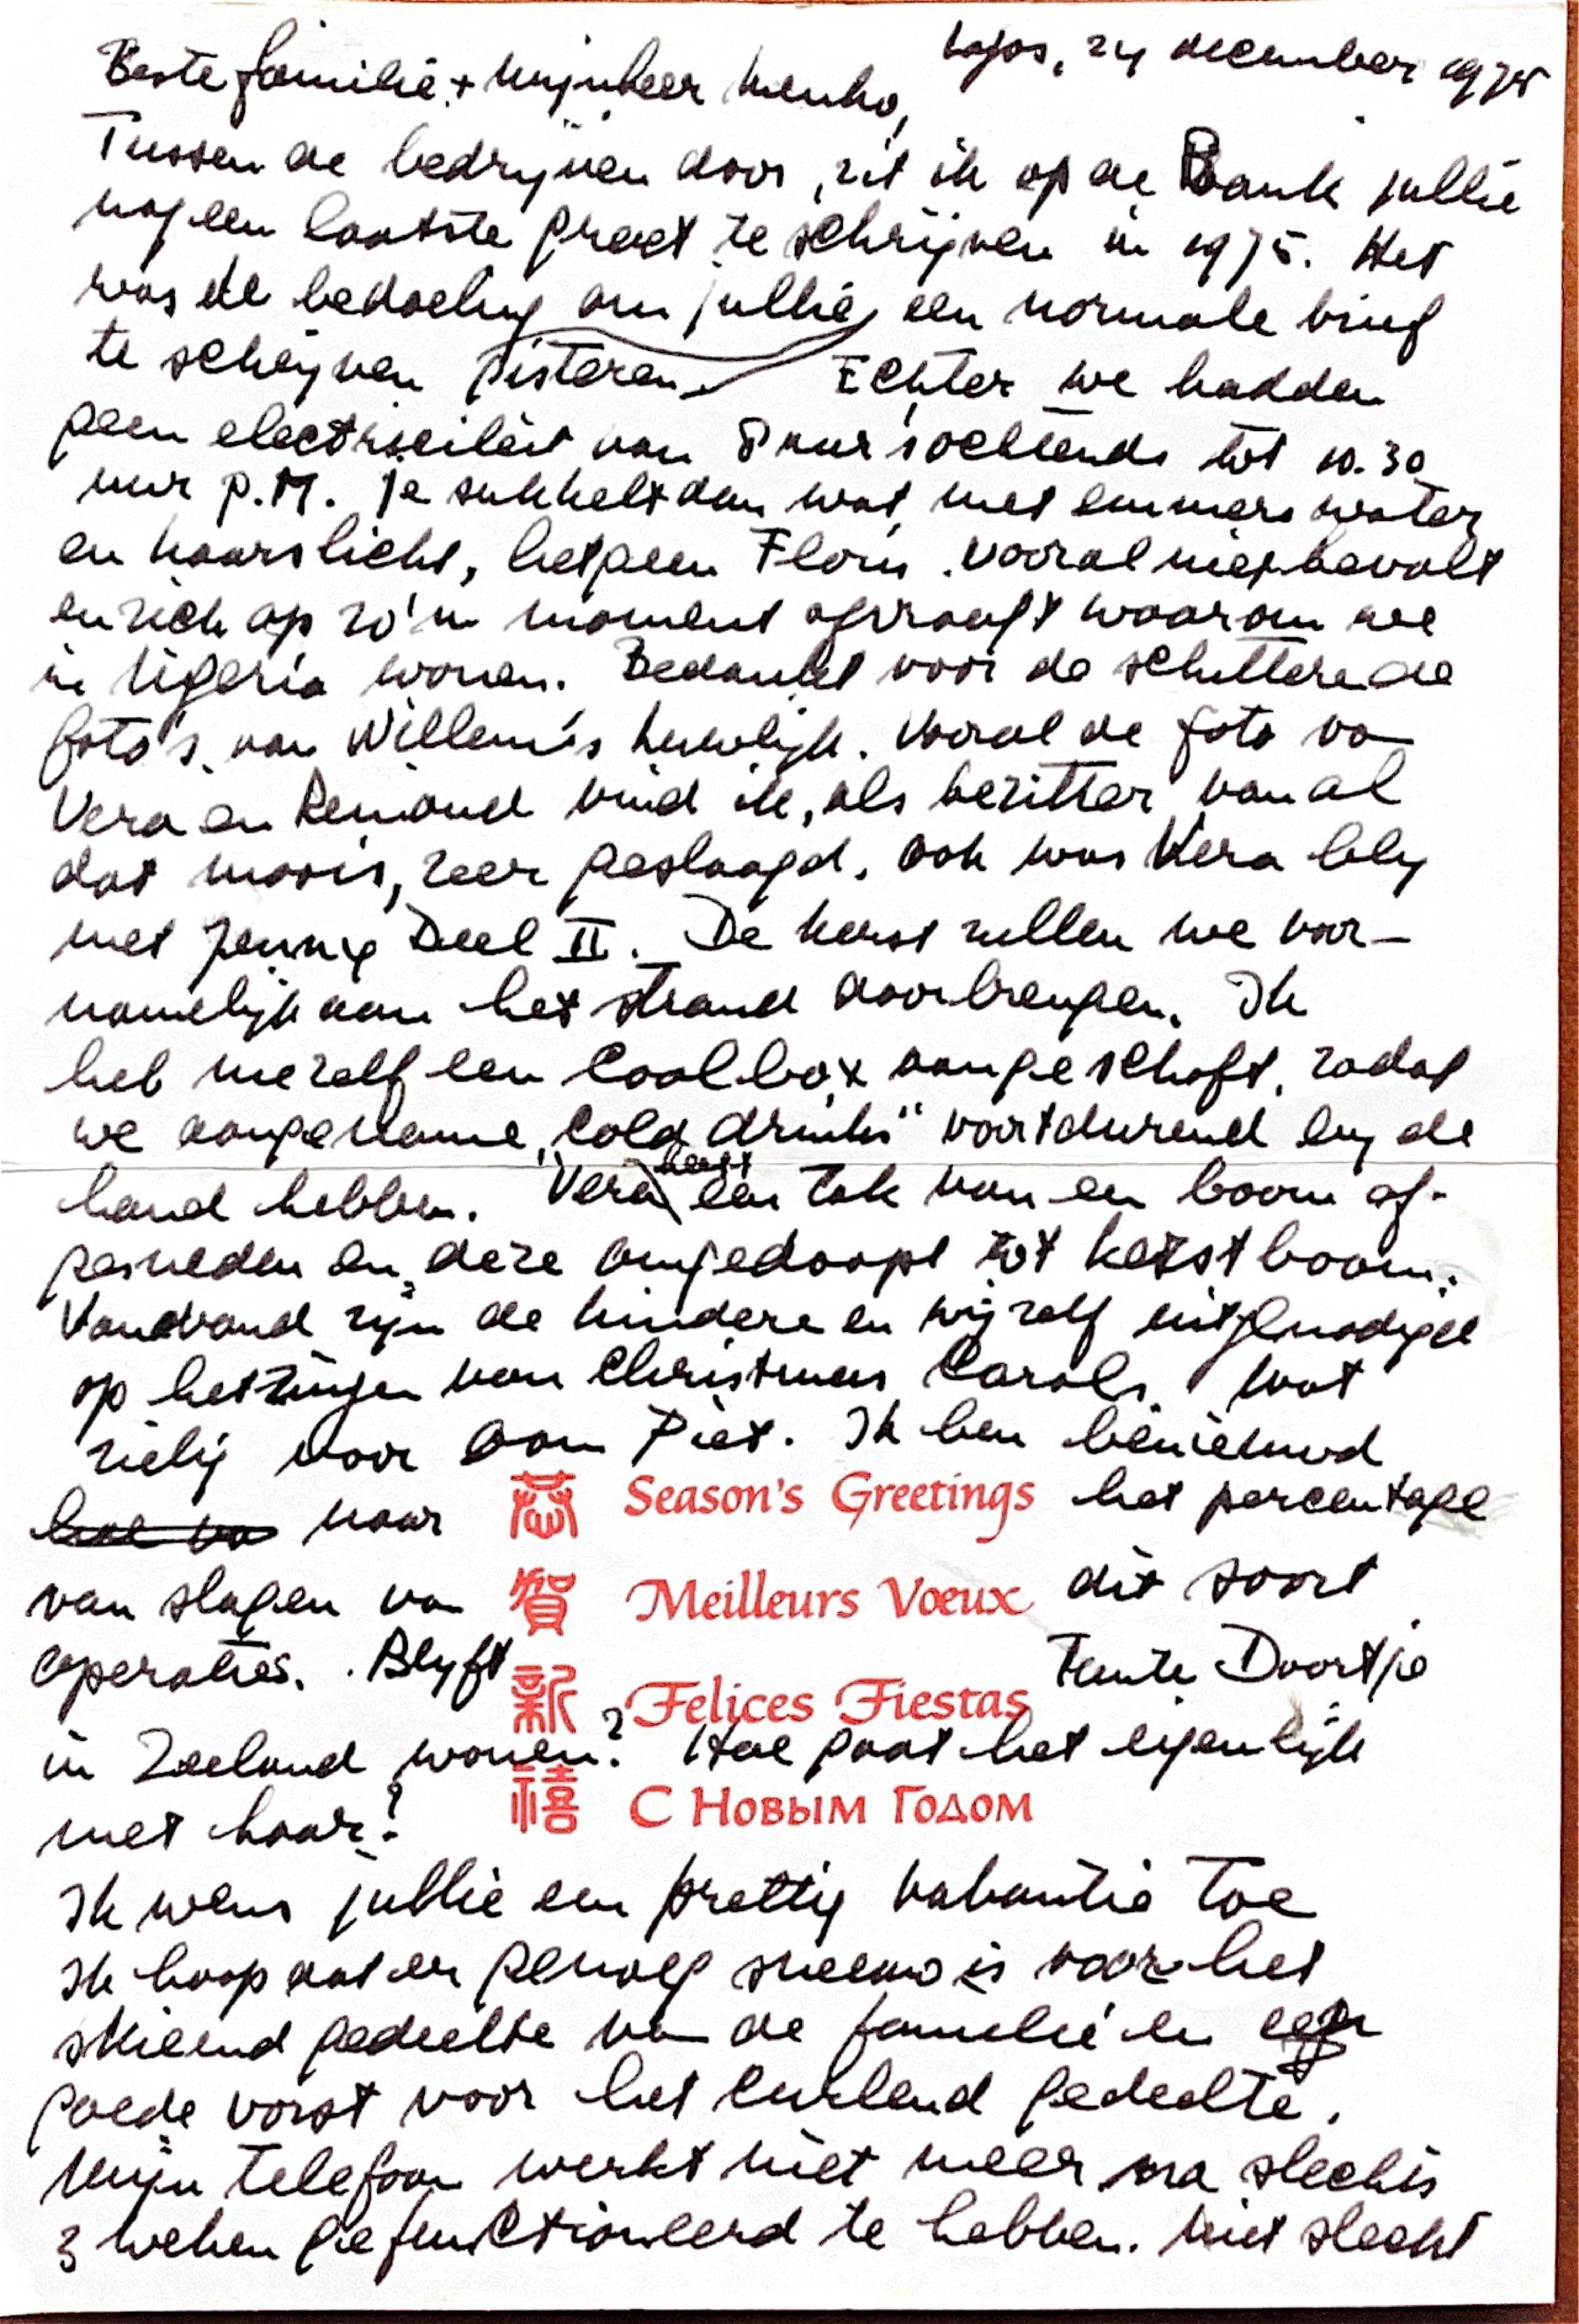 Lagos, 24 december 1975
Beste familie + mijnheer Menko,
Tussen de bedrijven door, zit ik op de Bank jullie
nog een laatste groet te schrijven in 1975. Het
was de bedoeling om jullie een normale brief
te schrijven gisteren Echter we hadden
geen electriciteit van 8 uur 's ochtends tot 10.30
uur p.M. Je sukkelt dan wat met emmers water
en kaarslicht, hetgeen Floris vooral niet bevalt
en zich op zo'n moment afvraagt waarom we
in Nigeria wonen. Bedankt voor de schitterende
foto's van Willem's huwelijk. Vooral de foto va
Vera en Reinoud vind ik, als bezitter van al
dat moois, zeer geslaagd. Ook was Vera bly
met Jenny Deel II. De kerst zullen we voor-
namelijk aan het strand doorbrengen. Ik
heb mezelf een Coolbox aangeschaft, zodat
we aangename „cold drinks" voortdurend by de
hand hebben. Vera heeft een tak van een boom af-
gesneden en deze omgedoopt tot kerstboom.
Vanavond zijn de kindere en wij zelf uitgenodigd
op het zingen van Christmas Carols. Wat
zielig voor oom Piet. Ik ben benieuwd
hoe va naar Season's Greetings het percentage
恭
van slagen va Meilleurs Vœux dit soort
賀
operaties. Blyft Tante Doortje
新 Felices Fiestas
in Zeeland wonen? Hoe gaat het eigenlijk
禧 С Новым Годом
met haar?
Ik wens jullie een prettig vakantie toe
Ik hoop dat er genoeg sneeuw is voor het
skieend gedeelte va de familie en een
goede vorst voor het curlend gedeelte.
Mijn telefoon werkt niet meer na slechts
3 weken gefunctioneerd te hebben. Niet slecht